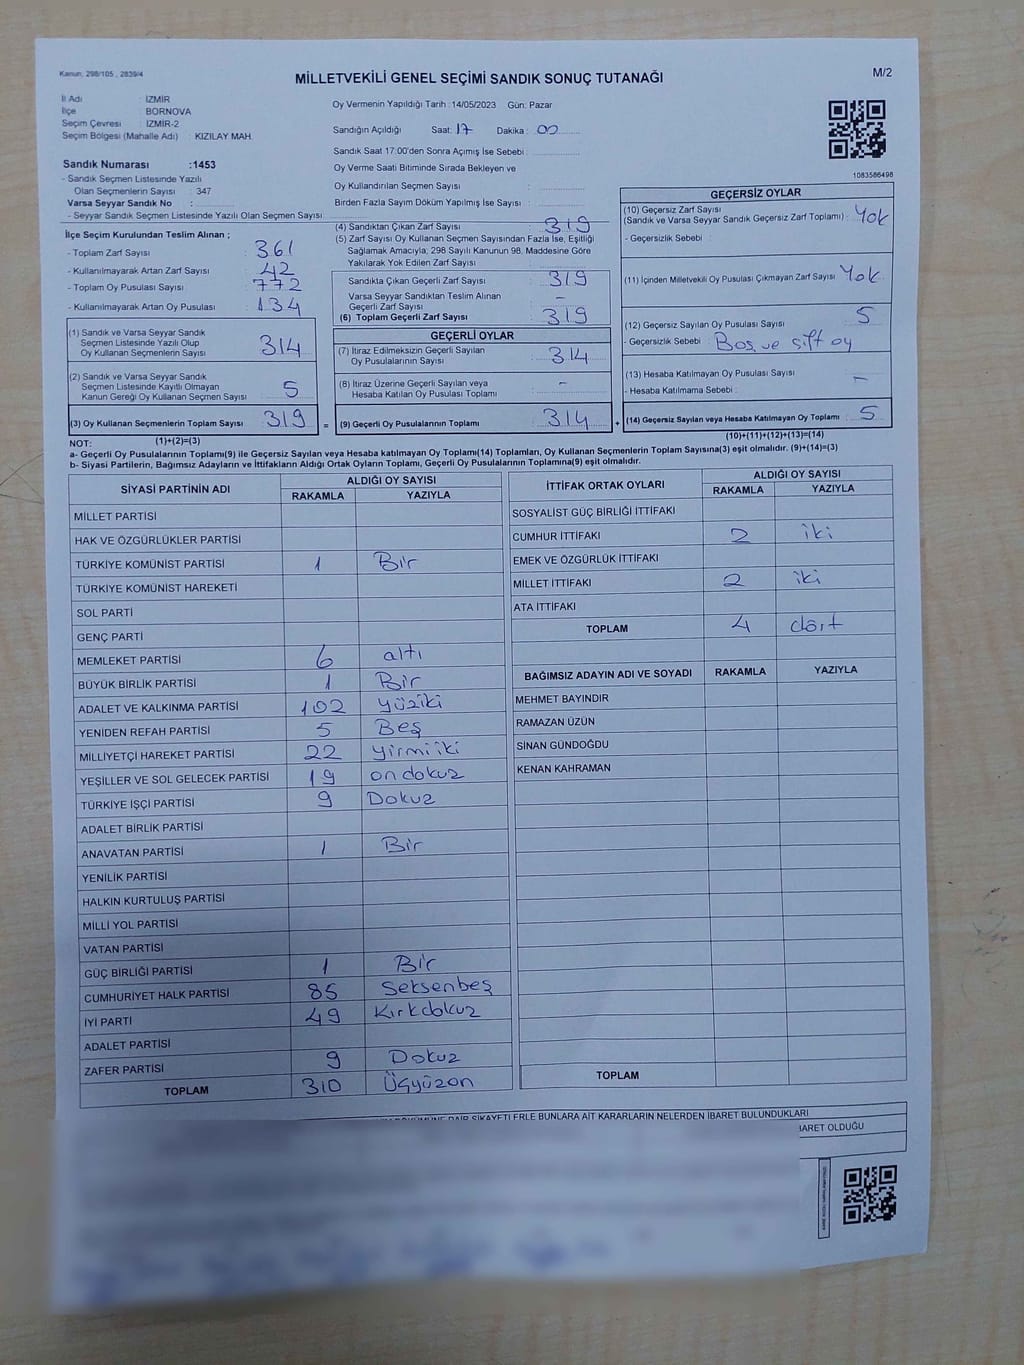 Kanun; 298/105 , 2839/4
MİLLETVEKİLİ GENEL SEÇİMİ SANDIK SONUÇ TUTANAĞI
M/2
İl Adı : İZMİR
İlçe : BORNOVA
Seçim Çevresi : İZMİR-2
Seçim Bölgesi (Mahalle Adı) : KIZILAY MAH.
Oy Vermenin Yapıldığı Tarih : 14/05/2023 Gün: Pazar
Sandığın Açıldığı Saat: 17 Dakika : 00
Sandık Saat 17:00'den Sonra Açımış İse Sebebi :
Oy Verme Saati Bitiminde Sırada Bekleyen ve
Oy Kullandırılan Seçmen Sayısı :
Birden Fazla Sayım Döküm Yapılmış İse Sayısı :
Sandık Numarası :1453
- Sandık Seçmen Listesinde Yazılı
Olan Seçmenlerin Sayısı : 347
Varsa Seyyar Sandık No :
- Seyyar Sandık Seçmen Listesinde Yazılı Olan Seçmen Sayısı
1083586498
İlçe Seçim Kurulundan Teslim Alınan ;
- Toplam Zarf Sayısı : 361
- Kullanılmayarak Artan Zarf Sayısı : 42
- Toplam Oy Pusulası Sayısı : 772
- Kullanılmayarak Artan Oy Pusulası : 134
(1) Sandık ve Varsa Seyyar Sandık
Seçmen Listesinde Yazılı Olup
Oy Kullanan Seçmenlerin Sayısı 314
(2) Sandık ve Varsa Seyyar Sandık
Seçmen Listesinde Kayıtlı Olmayan
Kanun Gereği Oy Kullanan Seçmen Sayısı 5
(3) Oy Kullanan Seçmenlerin Toplam Sayısı 319 =
(1)+(2)=(3)
(4) Sandıktan Çıkan Zarf Sayısı : 319
(5) Zarf Sayısı Oy Kullanan Seçmen Sayısından Fazla İse, Eşitliği
Sağlamak Amacıyla; 298 Sayılı Kanunun 98. Maddesine Göre
Yakılarak Yok Edilen Zarf Sayısı :
Sandıkta Çıkan Geçerli Zarf Sayısı : 319
Varsa Seyyar Sandıktan Teslim Alınan
Geçerli Zarf Sayısı : –
(6) Toplam Geçerli Zarf Sayısı : 319
GEÇERLİ OYLAR
(7) İtiraz Edilmeksizin Geçerli Sayılan
Oy Pusulalarının Sayısı : 314
(8) İtiraz Üzerine Geçerli Sayılan veya
Hesaba Katılan Oy Pusulası Toplamı : –
(9) Geçerli Oy Pusulalarının Toplamı : 314 +
GEÇERSİZ OYLAR
(10) Geçersiz Zarf Sayısı
(Sandık ve Varsa Seyyar Sandık Geçersiz Zarf Toplamı) : Yok
- Geçersizlik Sebebi :
(11) İçinden Milletvekili Oy Pusulası Çıkmayan Zarf Sayısı : Yok
(12) Geçersiz Sayılan Oy Pusulası Sayısı : 5
- Geçersizlik Sebebi : Boş ve Şift oy
(13) Hesaba Katılmayan Oy Pusulası Sayısı : –
- Hesaba Katılmama Sebebi :
(14) Geçersiz Sayılan veya Hesaba Katılmayan Oy Toplamı : 5
(10)+(11)+(12)+(13)=(14)
NOT:
a- Geçerli Oy Pusulalarının Toplamı(9) ile Geçersiz Sayılan veya Hesaba katılmayan Oy Toplamı(14) Toplamları, Oy Kullanan Seçmenlerin Toplam Sayısına(3) eşit olmalıdır. (9)+(14)=(3)
b- Siyasi Partilerin, Bağımsız Adayların ve İttifakların Aldığı Ortak Oyların Toplamı, Geçerli Oy Pusulalarının Toplamına(9) eşit olmalıdır.
SİYASİ PARTİNİN ADI ALDIĞI OY SAYISI
RAKAMLA YAZIYLA
MİLLET PARTİSİ
HAK VE ÖZGÜRLÜKLER PARTİSİ
TÜRKİYE KOMÜNİST PARTİSİ 1 Bir
TÜRKİYE KOMÜNİST HAREKETİ
SOL PARTİ
GENÇ PARTİ
MEMLEKET PARTİSİ 6 altı
BÜYÜK BİRLİK PARTİSİ 1 Bir
ADALET VE KALKINMA PARTİSİ 102 yüziki
YENİDEN REFAH PARTİSİ 5 Beş
MİLLİYETÇİ HAREKET PARTİSİ 22 yirmiiki
YEŞİLLER VE SOL GELECEK PARTİSİ 19 ondokuz
TÜRKİYE İŞÇİ PARTİSİ 9 Dokuz
ADALET BİRLİK PARTİSİ
ANAVATAN PARTİSİ 1 Bir
YENİLİK PARTİSİ
HALKIN KURTULUŞ PARTİSİ
MİLLİ YOL PARTİSİ
VATAN PARTİSİ
GÜÇ BİRLİĞİ PARTİSİ 1 Bir
CUMHURİYET HALK PARTİSİ 85 Seksenbeş
İYİ PARTİ 49 Kırkdokuz
ADALET PARTİSİ
ZAFER PARTİSİ 9 Dokuz
TOPLAM 310 Üçyüzon
İTTİFAK ORTAK OYLARI ALDIĞI OY SAYISI
RAKAMLA YAZIYLA
SOSYALİST GÜÇ BİRLİĞİ İTTİFAKI
CUMHUR İTTİFAKI 2 iki
EMEK VE ÖZGÜRLÜK İTTİFAKI
MİLLET İTTİFAKI 2 iki
ATA İTTİFAKI
TOPLAM 4 dört
BAĞIMSIZ ADAYIN ADI VE SOYADI RAKAMLA YAZIYLA
MEHMET BAYINDIR
RAMAZAN ÜZÜN
SİNAN GÜNDOĞDU
KENAN KAHRAMAN
TOPLAM
DÖKÜMÜNE DAİR ŞİKAYETLERLE BUNLARA AİT KARARLARIN NELERDEN İBARET BULUNDUKLARI
İBARET OLDUĞU